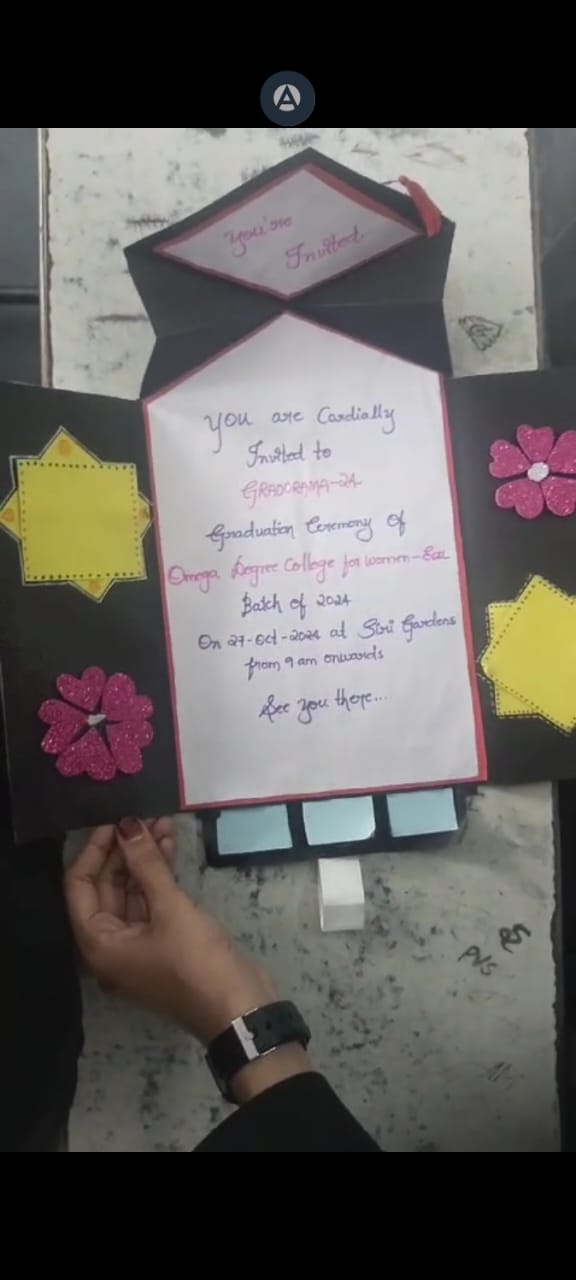 You're
Invited
You are Cordially
Invited to
GRADORAMA-24
Graduation Ceremony of
Omega Degree College for women-
Batch of 2024
On 27-Oct-2024 at Siri Gardens
from 9 am onwards
See you there...